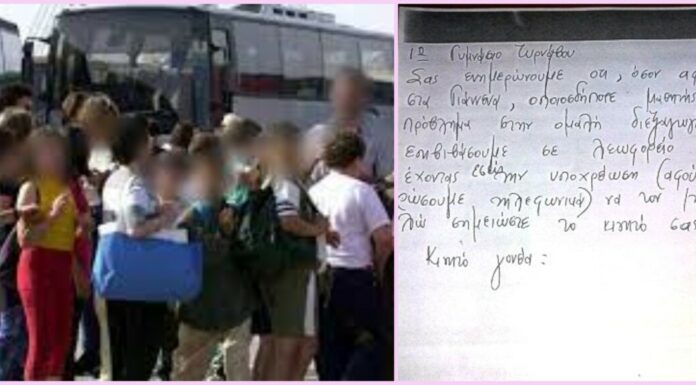 1ο Γυμνάσιο Τυρνάβου
Σας ενημερώνουμε οτι, όσον αφ
στα Γιάννενα, οποιοσδήποτε μαθητής
πρόβλημα στην ομαλή διεξαγωγ
επιβιβάσουμε σε λεωφορείο
έχοντας εσείς την υποχρέωση (αφού
ώσουμε τηλεφωνικά) να τον
λώ σημειώστε το κινητό σας
Κινητό γονέα: